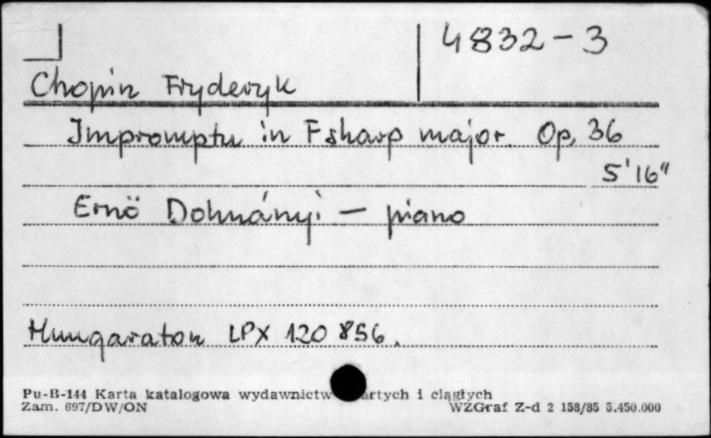 4832-3
Chopin Fryderyk
Impromptu in F sharp major. Op. 36
5'16"
Ernö Dohnányi - piano
Hungaraton LPX 120 856.
Pu-B-144 Karta katalogowa wydawnictw artych i ciągłych
Zam. 697/DW/ON WZGraf Z-d 2 158/85 5.450.000